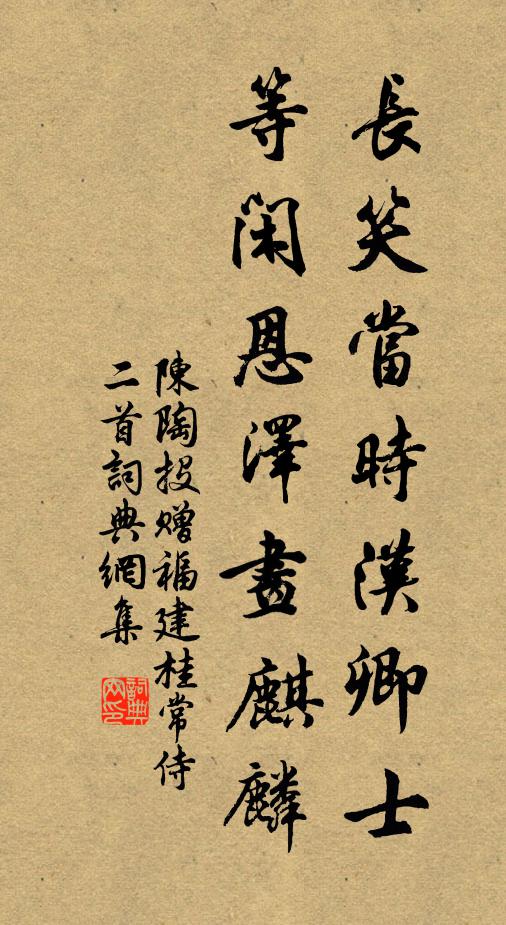 長笑當時漢卿士
等閑恩澤畫麒麟
陳陶投贈福建桂常侍
二首詞典網集
詞典
网印